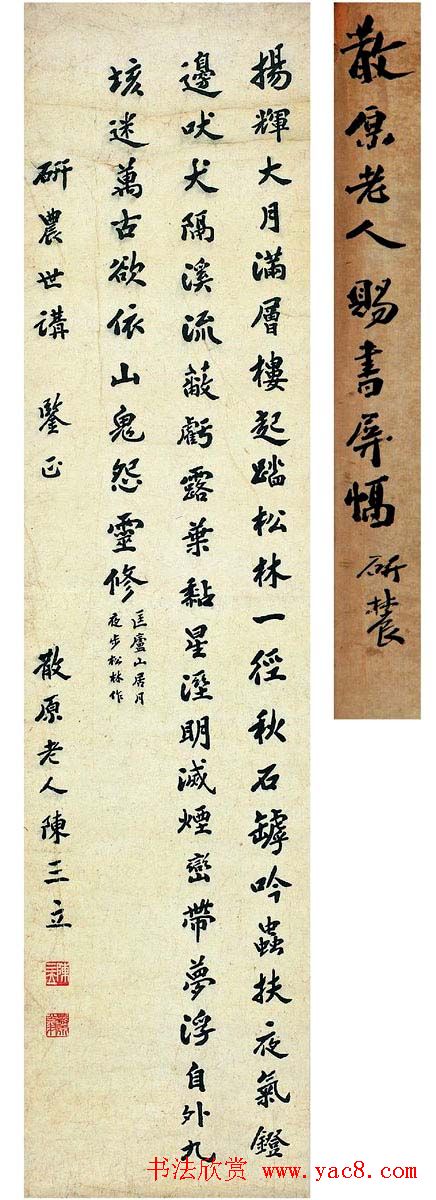 散原老人賜書屏幅
斫農
揚輝大月滿層樓起踏松林一徑秋石罅吟蟲扶夜氣鐙
邊吠犬隔溪流蔽虧露葉黏星溼明滅煙巒帶夢浮自外九
垓迷萬古欲依山鬼怨靈修
匡廬山居月
夜步松林作
斫農世講 鑒正 散原老人陳三立
书法欣赏 www.yac8.com